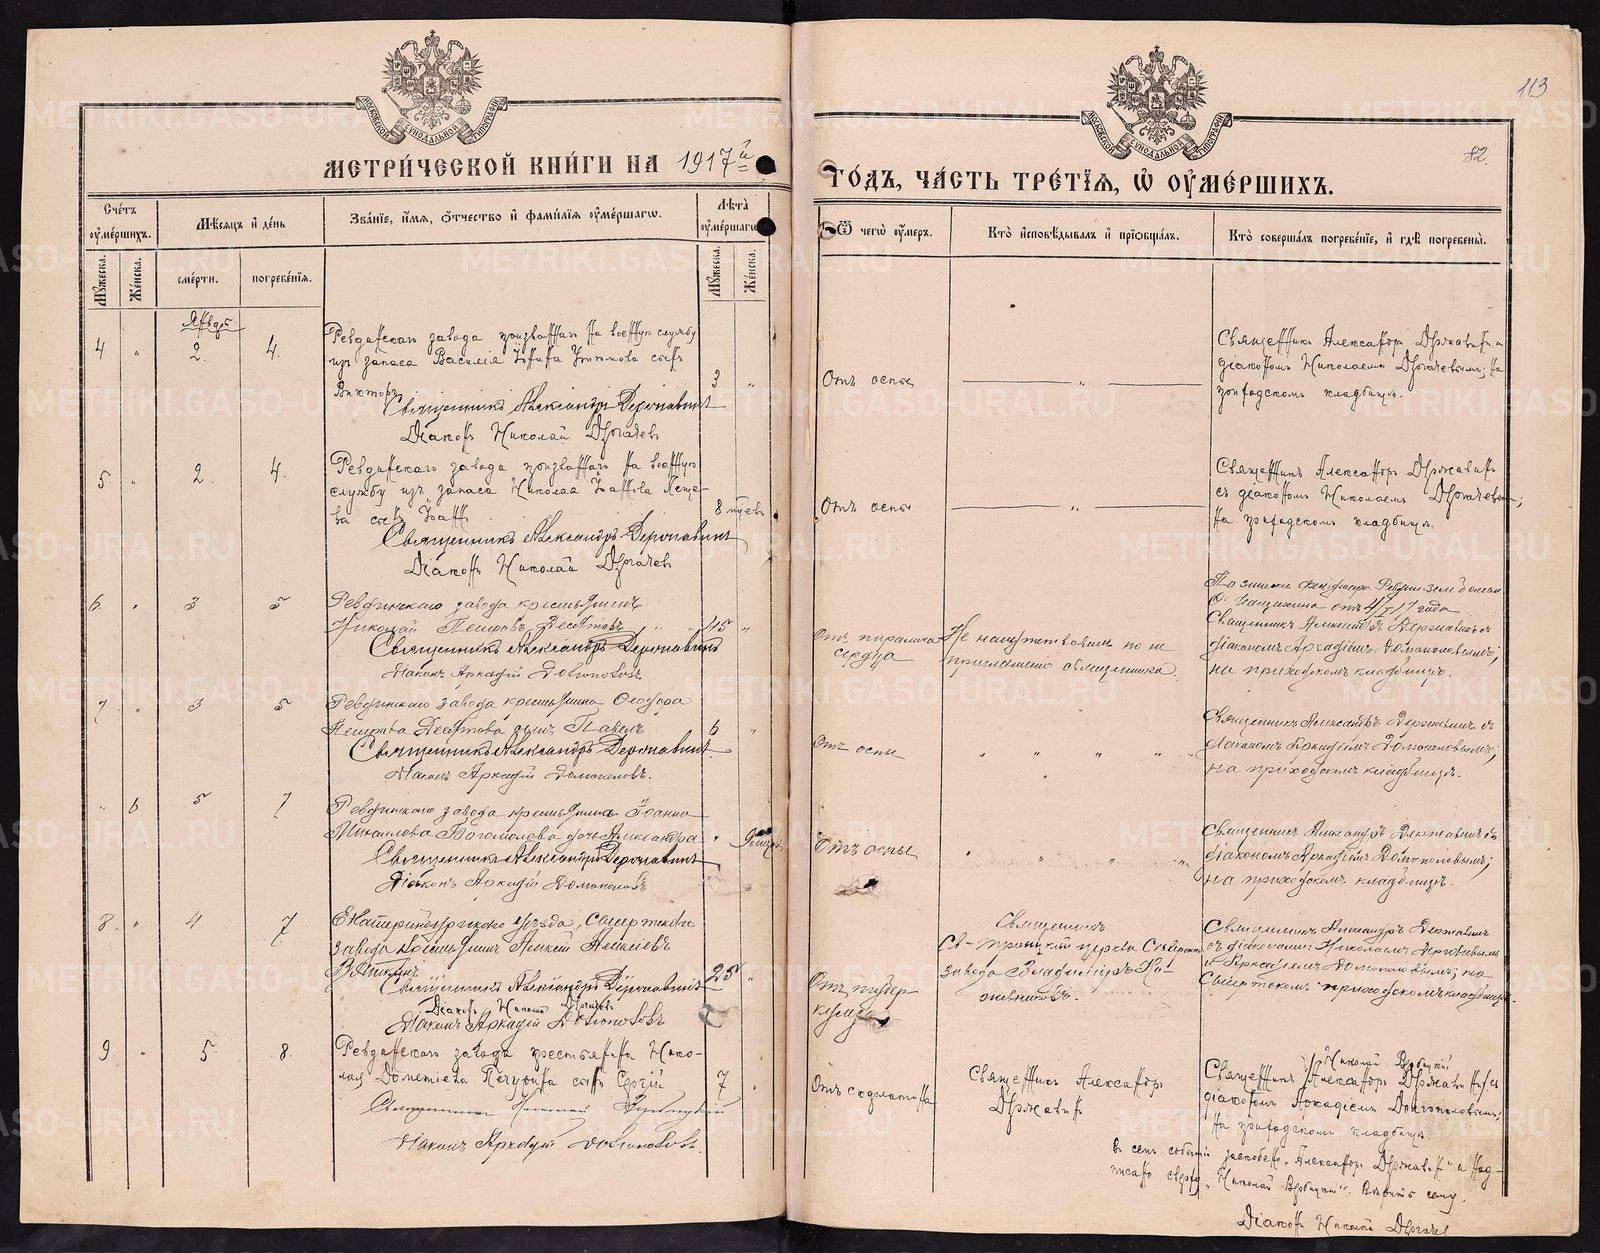 113
82.
МЕТРИ́ЧЕСКОЙ КНИ́ГИ НА 1917 й
ГО́ДЪ, ЧА́СТЬ ТРЕ́ТІѦ, Ѡ҆ ОУ҆МЕ́РШИХЪ.
Сче́тъ оу҆ме́ршихъ.
Мѣ́сѧцъ и҆ де́нь
Зва́нїе, и҆́мѧ, ѻ҆́тчество и҆ фами́лїѧ оу҆ме́ршагѡ.
Лѣ́та оу҆ме́ршагѡ
Мꙋ́жеска.
Же́нска.
сме́рти.
погребе́нїѧ.
Мꙋ́жеска.
Же́нска.
Ѿ чегѡ̀ оу҆́меръ.
Кто̀ и҆сповѣ́дывалъ и҆ прїѡбща́лъ.
Кто̀ соверша́лъ погребе́нїе, и҆ гдѣ̀ погребены̀.
4 " 2. 4.
Ревдинскаго завода призваннаго на военную службу
изъ запаса Василія сынъ
Викторъ
3 "
Священникъ Александръ Державинъ
Діаконъ Николай Дергачевъ
Отъ оспы
"
Священникъ Александръ Державинъ и
діакономъ Николаемъ Дергачевымъ; на
приходскомъ кладбищѣ.
5 " 2. 4.
Ревдинскаго завода призваннаго на военную
службу изъ запаса Николая Іванова
сынъ Іоаннъ
8 мцевъ
Священникъ Александръ Державинъ
Діаконъ Николай Дергачев
Отъ оспы
"
Священникъ Александръ Державинъ
съ діакономъ Николаемъ Дергачевымъ;
на приходскомъ кладбищѣ.
6. " 3 5
Ревдинскаго завода крестьянинъ
Николай Пешковъ Десятовъ
45 "
Священникъ Александръ Державинъ
Діаконъ Аркадій Домополовъ
Отъ паралича
сердца
Не напутствованъ по не
приглашенію священника.
отъ 4/I 17 года
Священникъ Александръ Державинъ съ
діакономъ Аркадіемъ Домополовымъ;
на приходскомъ кладбищѣ.
7 " 3 5
Ревдинскаго завода крестьянина Ѳеодора
Пешкова Десятова сынъ Павелъ
6 "
Священникъ Александръ Державинъ
Діаконъ Аркадій Домополовъ.
Отъ оспы
" " " "
Священникъ Александръ Державинъ съ
діакономъ Аркадіемъ Домополовымъ;
на приходскомъ кладбищѣ.
" 6 5 7
Ревдинскаго завода крестьянина Іоанна
Михаилова Богомолова дочь Александра
" 9 мцевъ
Священникъ Александръ Державинъ
Діаконъ Аркадій Домополовъ
Отъ оспы
" " " "
Священникъ Александръ Державинъ съ
діакономъ Аркадіемъ Домополовымъ;
на приходскомъ кладбищѣ.
8. " 4 7
Екатеринбургскаго уѣзда, Сысертскаго
завода крестьянинъ Алексѣевъ
Вяткинъ
25 "
Священникъ Александръ Державинъ
Діаконъ Николай Дергачевъ
Діаконъ Аркадій Домополовъ
Отъ тубер-
кулеза
Священникъ
Св-Троицкой церкви Сѣверскаго
завода Владиміръ
Священникъ Александръ Державинъ
съ діаконами: Николаемъ Дергачевымъ
и Аркадіемъ Домополовымъ; на
Сысертскомъ приходскомъ кладбищѣ.
9. " 5 8.
Ревдинскаго завода крестьянина Нико-
лая Дометіева Печурина сынъ Сергій
7 "
Священникъ Николай Вербицкій
Діаконъ Аркадій Домополовъ.
Отъ скарлатина
Священникъ Александръ
Державинъ
Николай Вербицкій
Священникъ Александръ Державинъ съ
діакономъ Аркадіемъ Домополовымъ;
на приходскомъ кладбищѣ.
въ семъ событіи „Александръ Державинъ“ и над-
писано сверху „Николай Вербицкій“. Вѣрить сему.
Діаконъ Николай Дергачев
METRIKI.GASO-URAL.RU